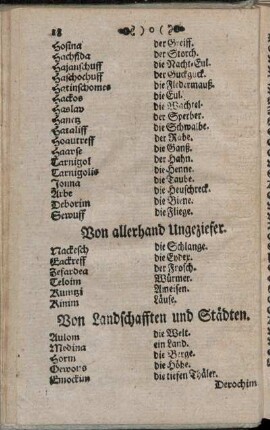 18 ) o (
Hosina der Greiff.
Hachsida der Storch.
Hajanschuff die Nacht-Eul.
Haschochuff der Guckguck.
Hatinschomes die Fledermauß.
Hackos die Eul.
Haslaw die Wachtel.
Hanetz der Sperber.
Hataliff die Schwalbe.
Hoautreff der Rabe.
Haarse die Ganß.
Tarnigol der Hahn.
Tarnigolis die Henne.
Jonna die Taube.
Arbe die Heuschreck.
Deborim die Biene.
Sewuff die Fliege.
Von allerhand Ungeziefer.
Nackesch die Schlange.
Eackreff die Eydex.
Zefardea der Frosch.
Teloim Würmer.
Kuntzi Ameisen.
Kimm Läuse.
Von Landschafften und Städten.
Aulom die Welt.
Medina ein Land.
Horm die Berge.
Gewors die Höhe.
Emockun die tiefen Thäler.
Derochim